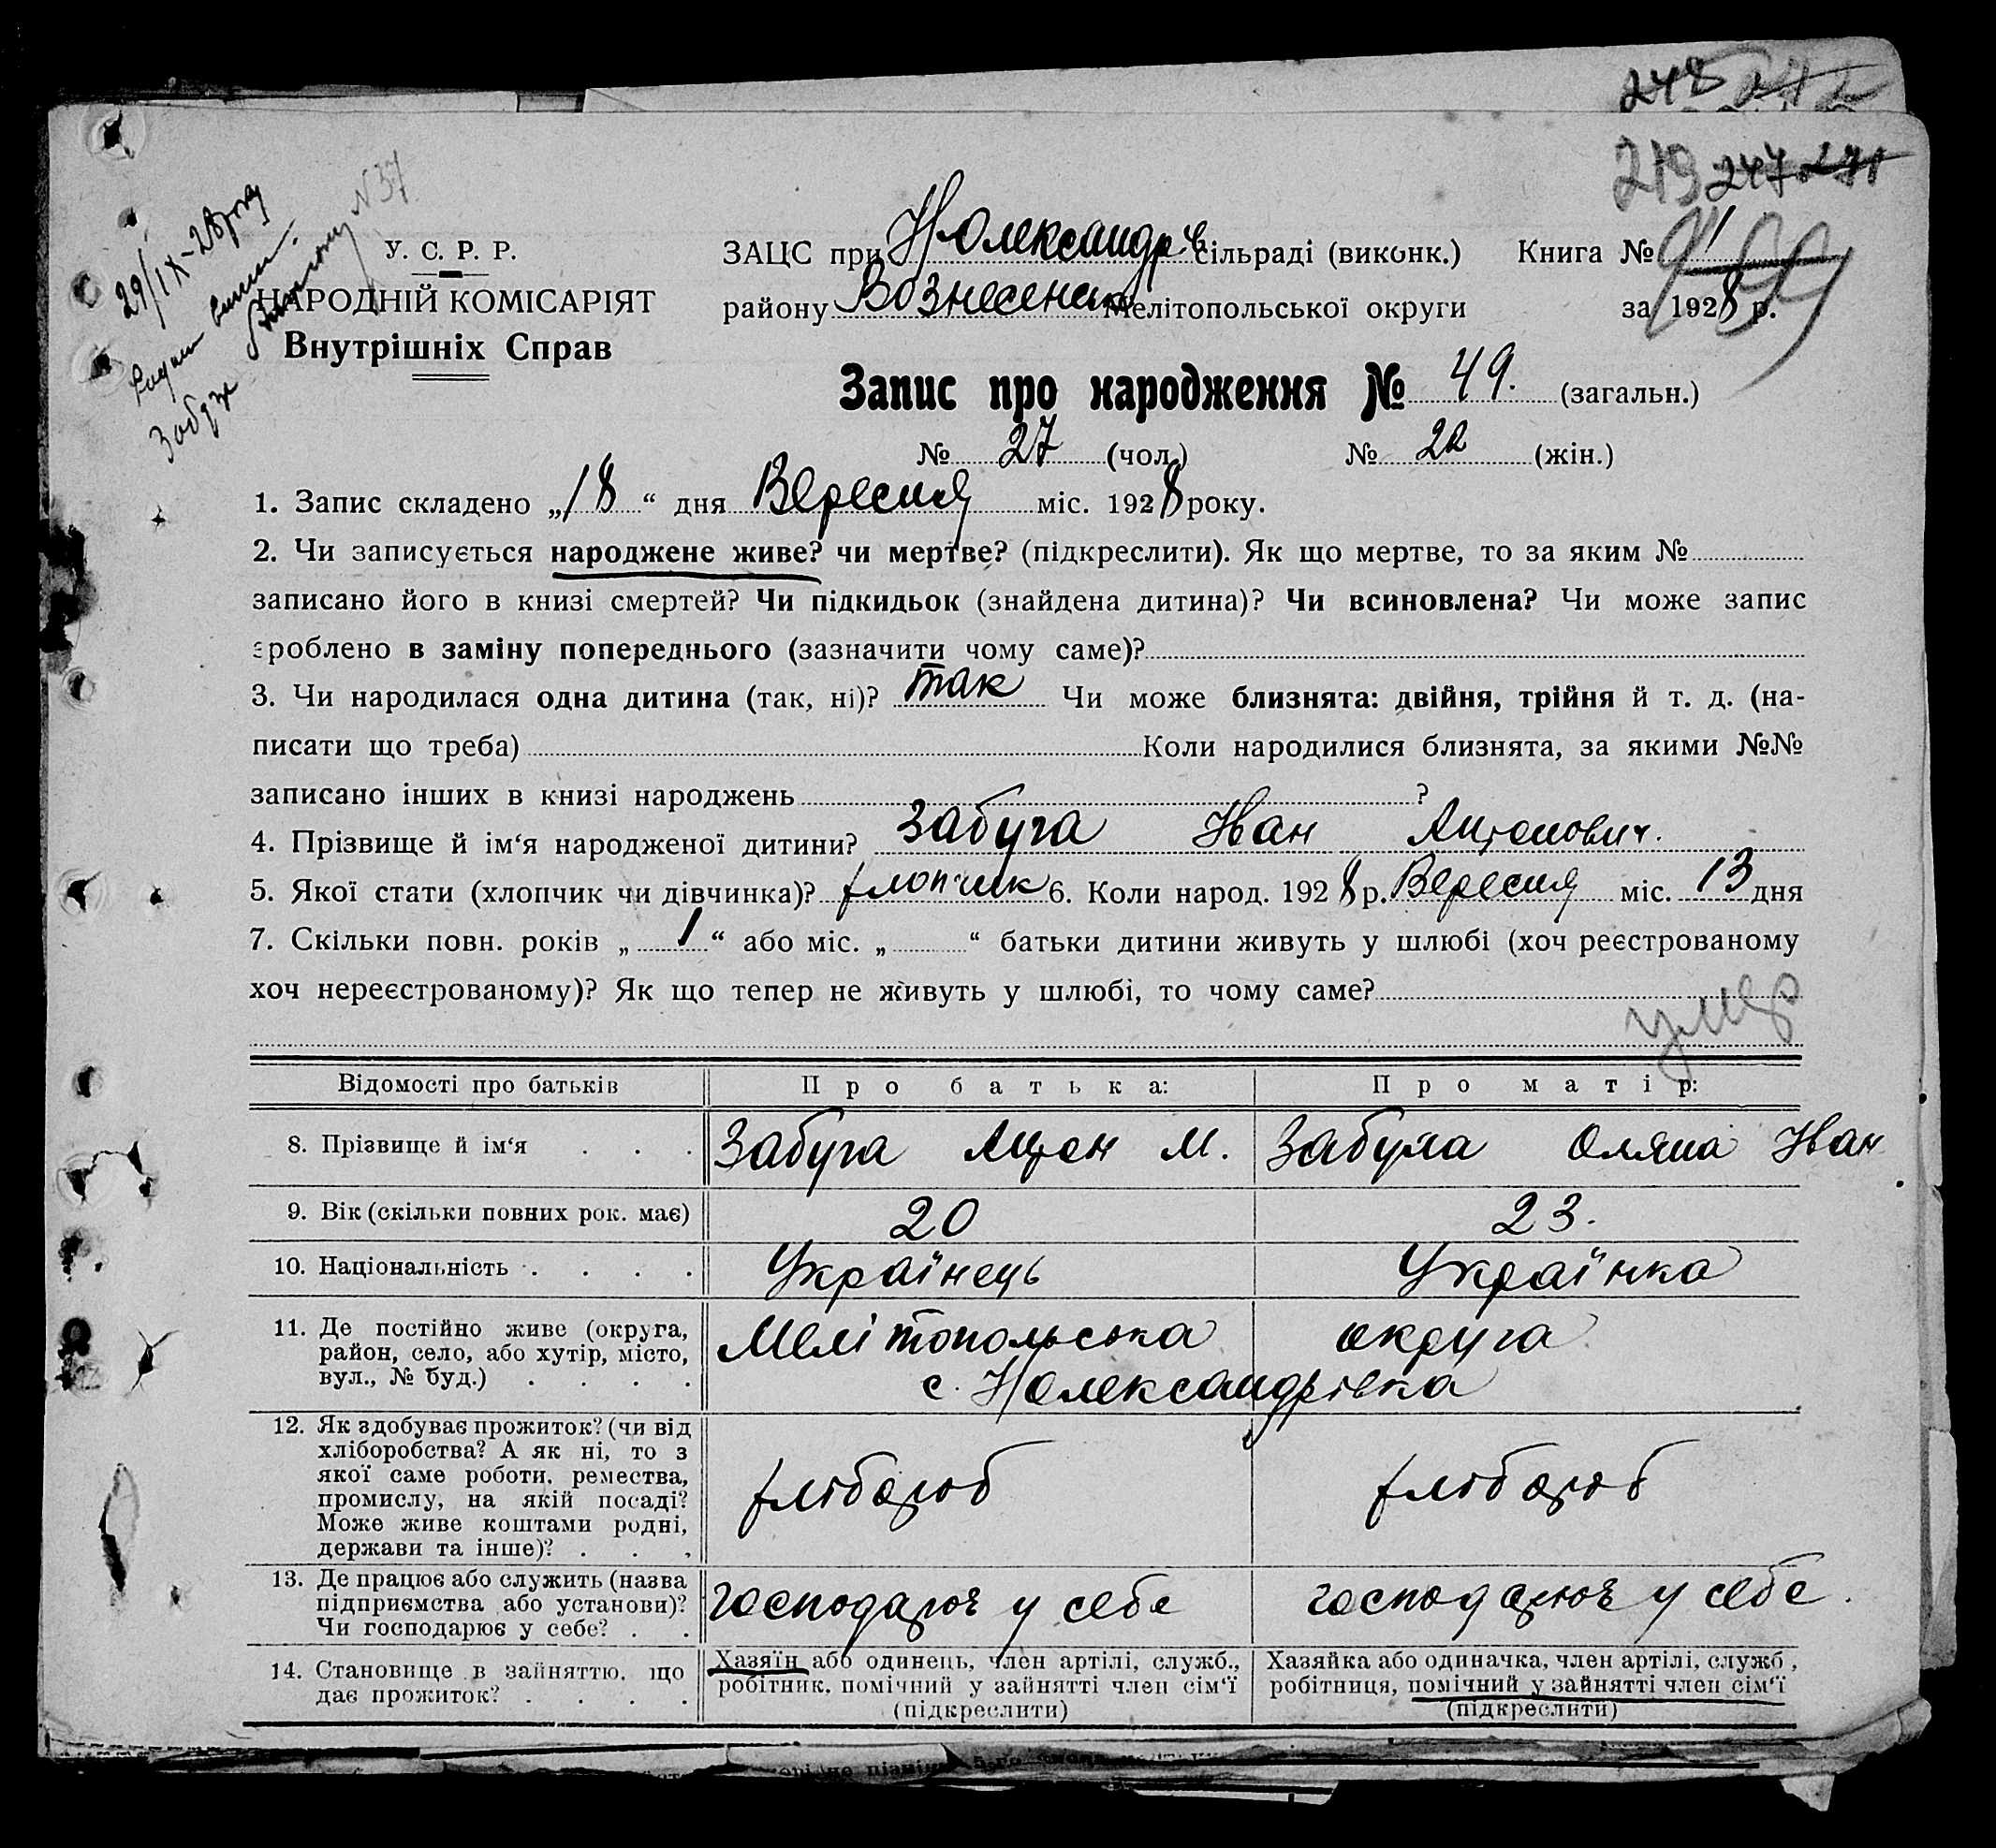 248 272
219 247 271
29/IX-28 року
N 37
У. С. Р. Р.
НАРОДНІЙ КОМІСАРІЯТ
Внутрішніх Справ
ЗАЦС при Н Олександр сільраді (виконк.) Книга №
району Вознесенск Мелітопольської округи за 1928 р.
Запис про народження № 49. (загальн.)
№ 27 (чол.) № 22 (жін.)
1. Запис складено „18“ дня Вересня міс. 1928 року.
2. Чи записується народжене живе? чи мертве? (підкреслити). Як що мертве, то за яким №
записано його в книзі смертей? Чи підкидьок (знайдена дитина)? Чи всиновлена? Чи може запис
зроблено в заміну попереднього (зазначити чому саме)?
3. Чи народилася одна дитина (так, ні)? так Чи може близнята: двійня, трійня й т. д. (на-
писати що треба) Коли народилися близнята, за якими №№
записано інших в книзі народжень ?
4. Прізвище й ім‘я народженої дитини? Забуга Іван Антонович.
5. Якої стати (хлопчик чи дівчинка)? хлопчик 6. Коли народ. 1928 р. Вересня міс. 13 дня
7. Скільки повн. років „ 1 “ або міс. „ “ батьки дитини живуть у шлюбі (хоч реєстрованому
хоч нереєстрованому)? Як що тепер не живуть у шлюбі, то чому саме?
умер
Відомості про батьків Про батька: Про матір:
8. Прізвище й ім‘я . . . Забуга Антон М. Забуга Оляна Іван
9. Вік (скільки повних рок. має) 20 23.
10. Національність . . . . Українець Українка
11. Де постійно живе (округа, Мелітопольська округа
район, село, або хутір, місто, с. Н Олександрівка
вул., № буд.) . . . .
12. Як здобуває прожиток? (чи від
хліборобства? А як ні, то з
якої саме роботи, ремества, хлібороб хлібороб
промислу, на якій посаді?
Може живе коштами родні,
держави та інше)? . . .
13. Де працює або служить (назва
підприємства або установи)? господарює у себе господарює у себе.
Чи господарює у себе? . .
14. Становище в зайняттю, що Хазяїн або одинець, член артілі, служб., Хазяйка або одиначка, член артілі, служб.,
дає прожиток? . . . . робітник, помічний у зайнятті член сім‘ї робітниця, помічний у зайнятті член сім‘ї
(підкреслити) (підкреслити)